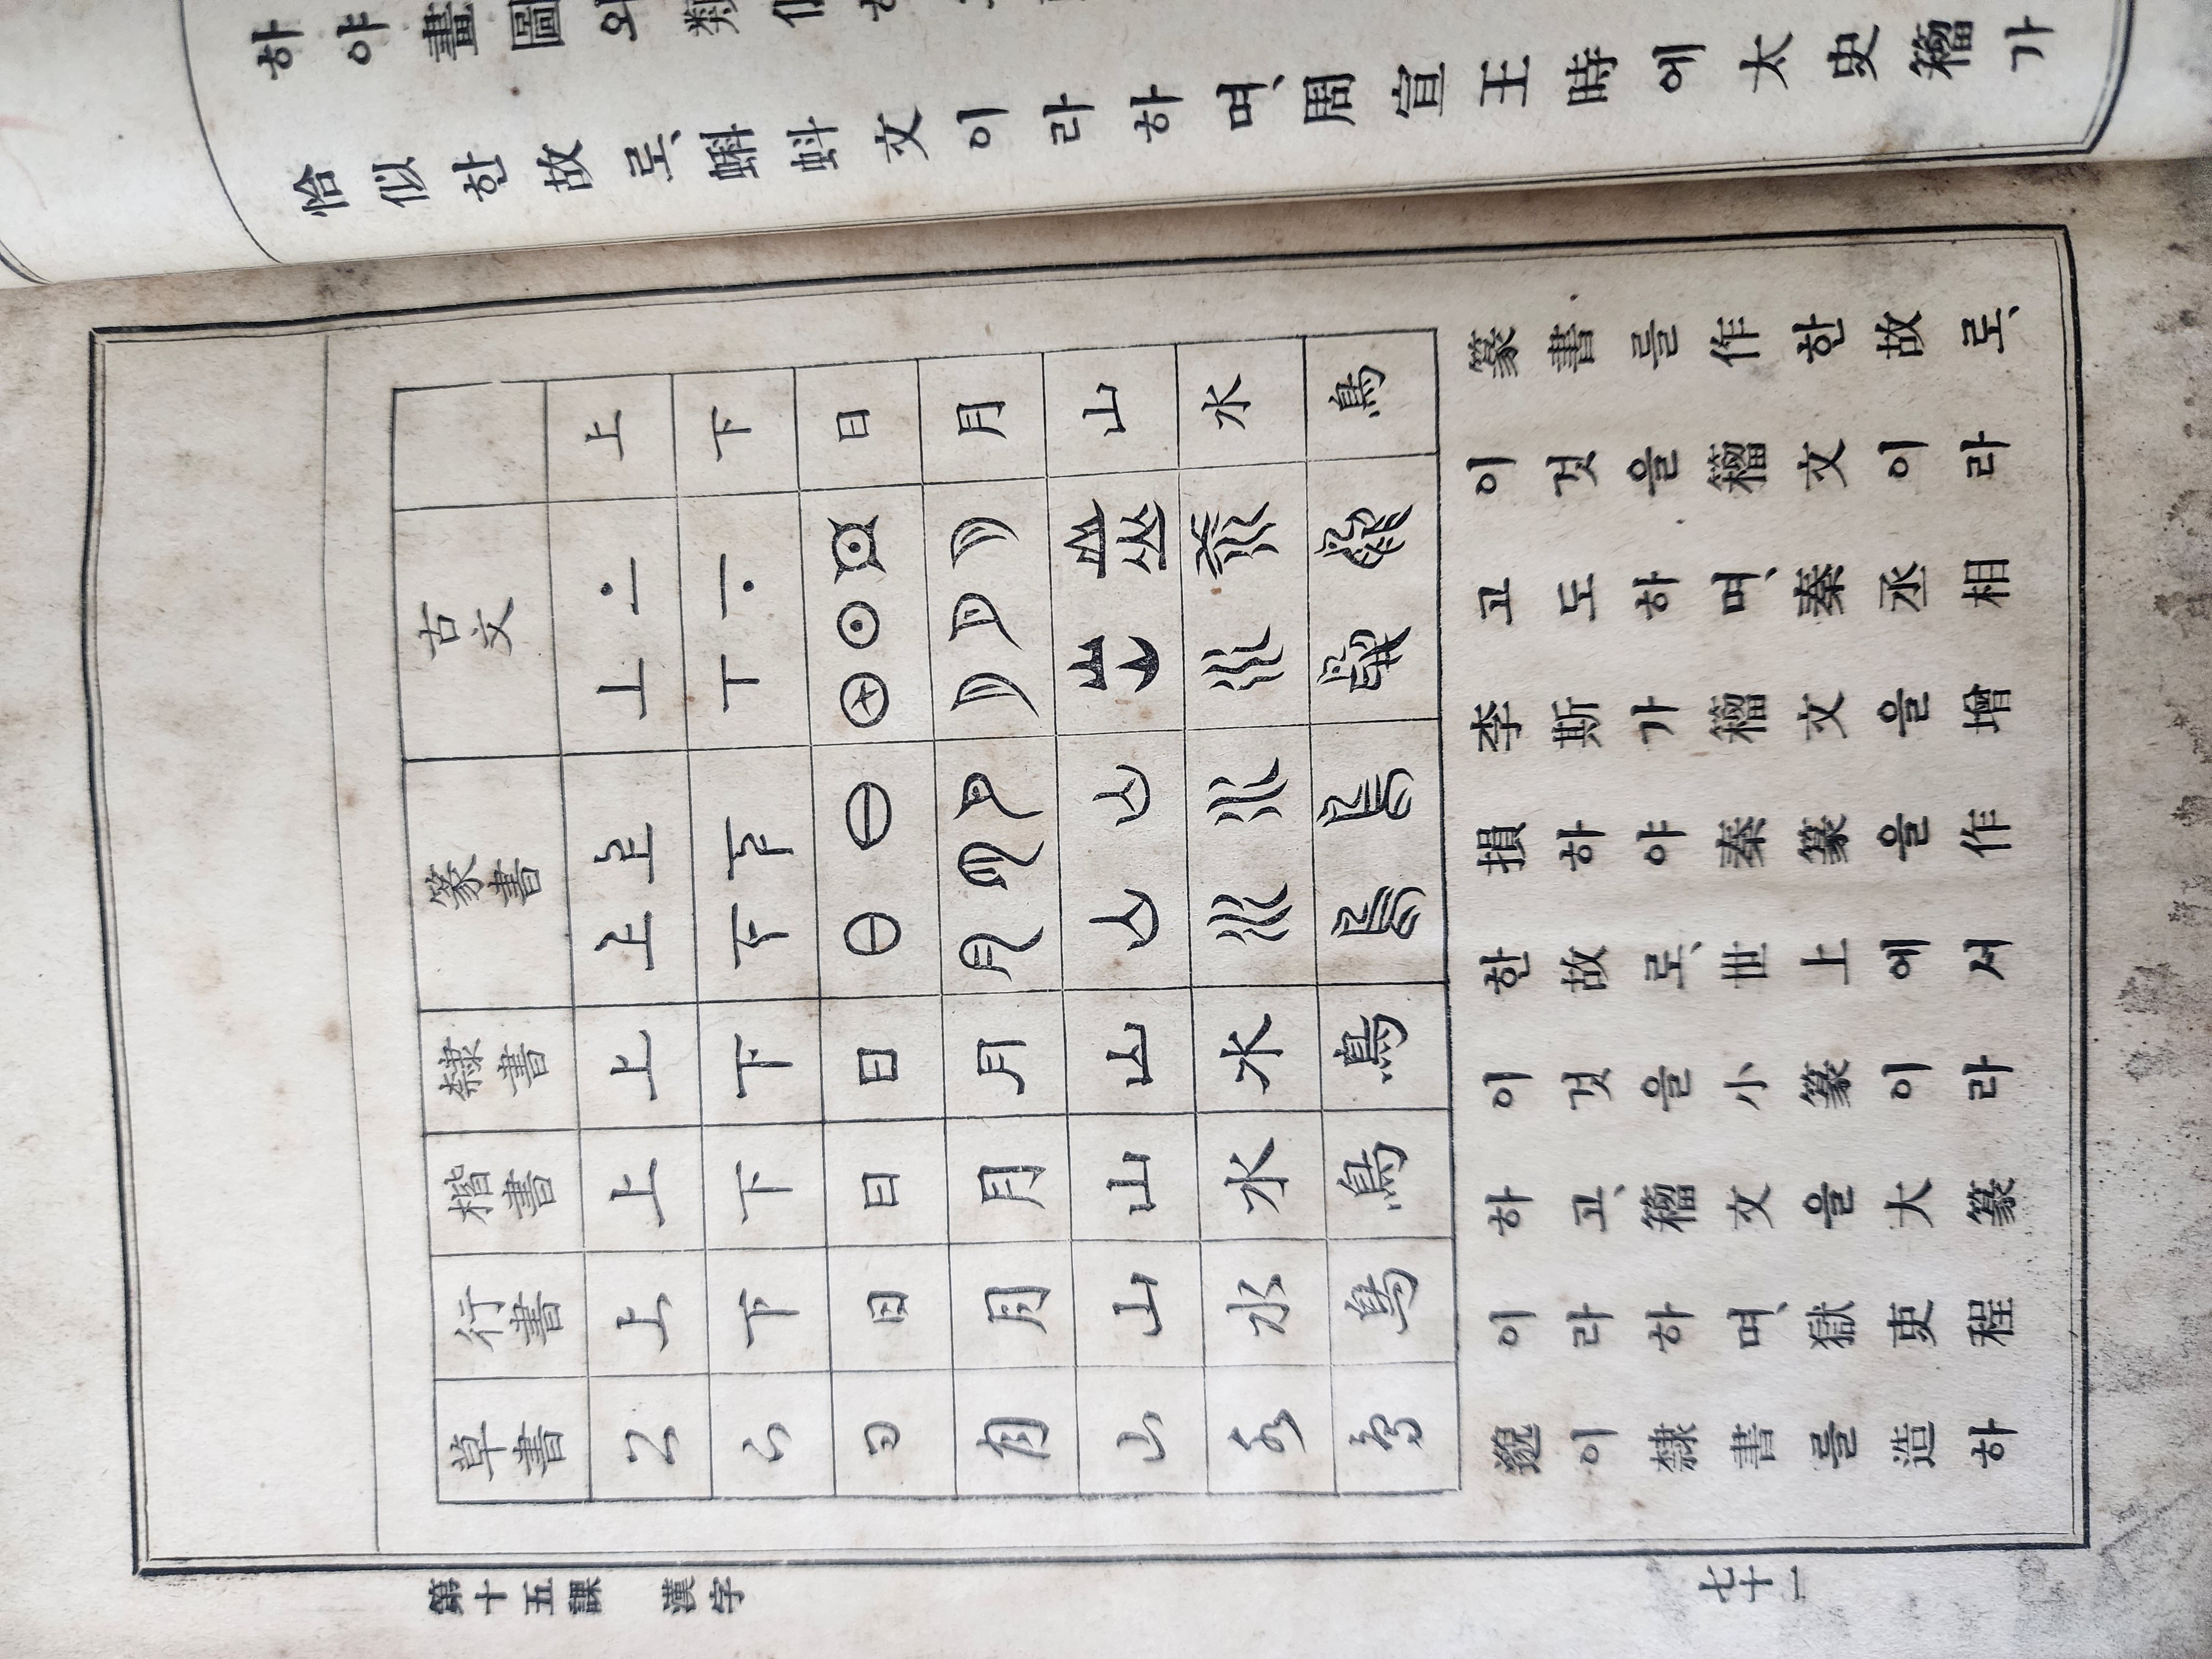 하야畫圖와類
恰似한故로、蝌蚪文이라하며、周宣王時에太史籒가
上 下 日 月 山 水 鳥
古文
篆書
隷書 上 下 日 月 山 水 鳥
楷書 上 下 日 月 山 水 鳥
行書 上 下 日 月 山 水 鳥
草書 上 下 日 月 山 水 鳥
篆書를作한故로、
이것을籒文이라
고도하며、秦丞相
李斯가籒文을增
損하야秦篆을作
한故로、世上에서
이것을小篆이라
하고、籒文을大篆
이라하며、獄吏程
邈이隷書를造하
第十五課 漢字
七十一